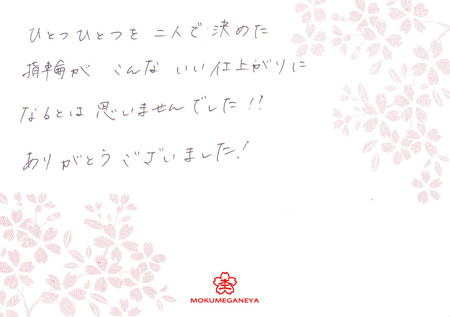 ひとつひとつを 二人で 決めた
指輪が こんな いい 仕上がりに
なるとは 思いませんでした!!
ありがとうございました!
MOKUMEGANEYA